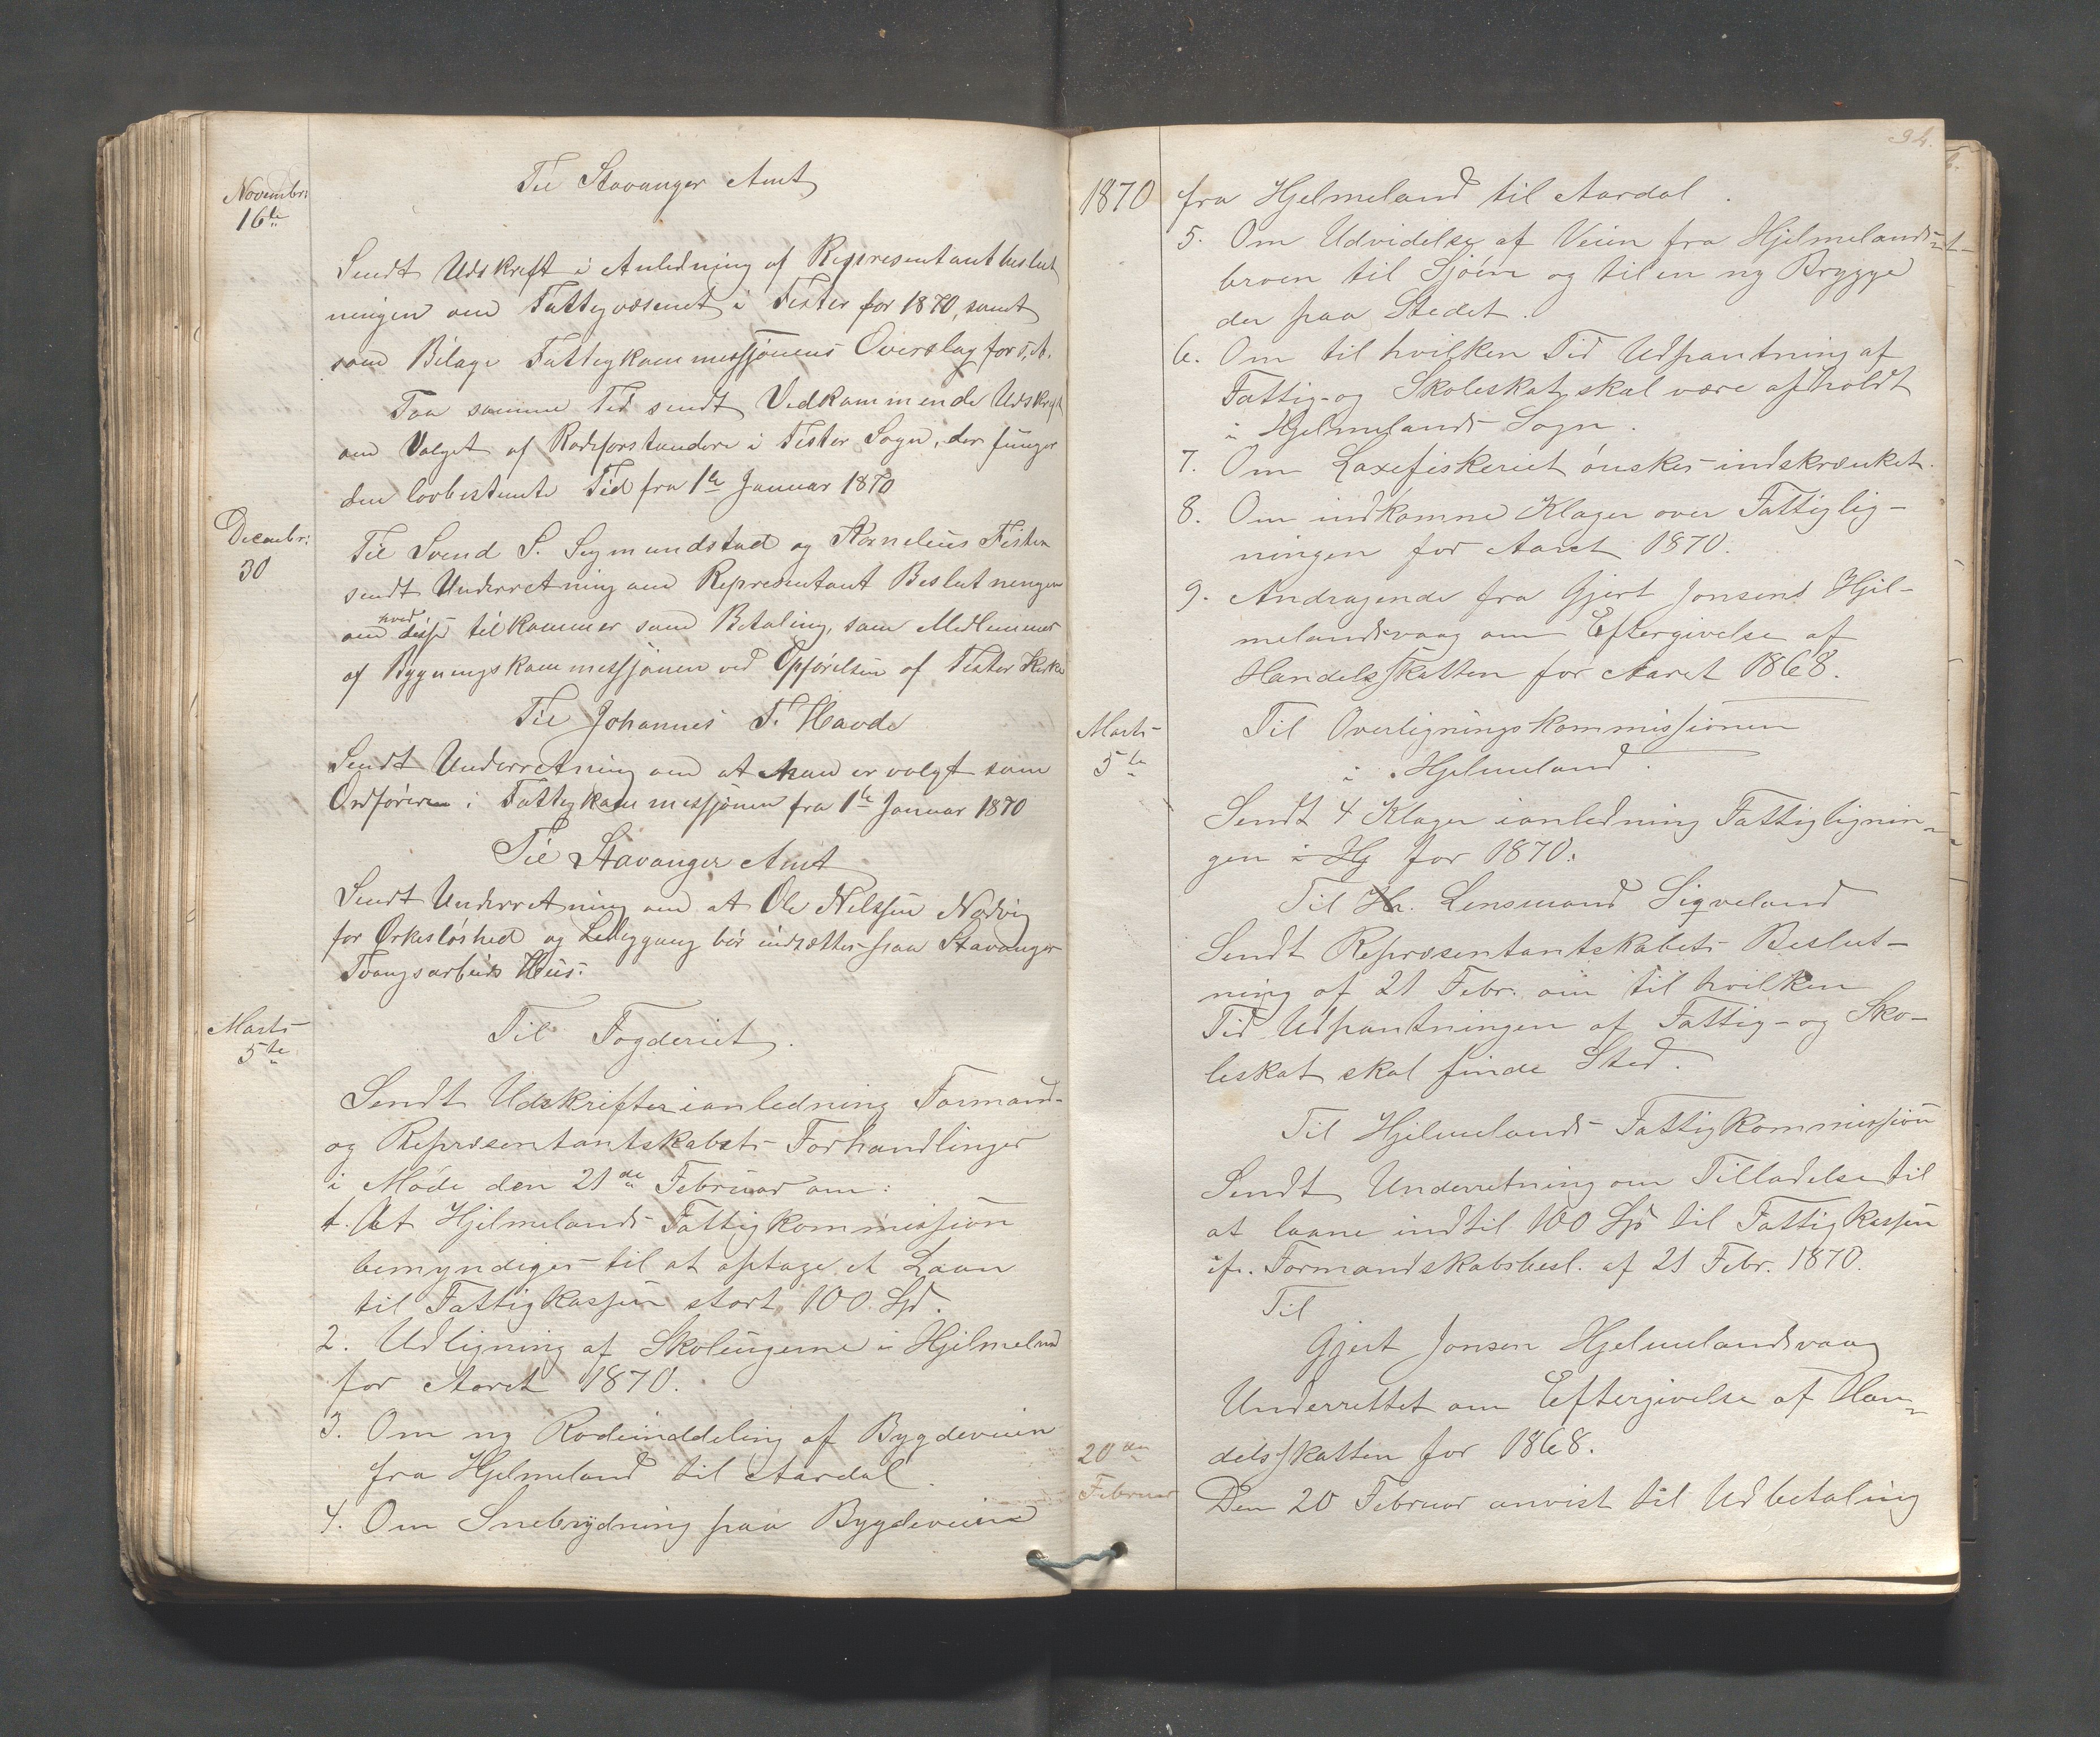 Novembr:
16de
Til Stavanger Amt
Sendt Udskrift i Anledning af Representantbeslut
ningen om Fattigvæsenet i Fister for 1870, samt
som Bilage Fattigkommissjonens Overslag for s. A.
Paa samme Tid sendt Vedkammende Udskrift
om Valget af Rodeforstandere i Fister Sogn, der funger
den lovbestemte Tid fra 1te Januar 1870
Decembr:
30
Til Svend S. Sigmundstad og Kornelius Fister
sendt Underretning om Representant Beslutningen
om hvad disse tilkommer som Betaling, som Medlemmer
af Bygningskommissjonen ved Opførelsen af Fister Kirke
Til Johannes T. Havde
Sendt Underretning om at han er valgt som
Ordføreren i Fattigkommissjonen fra 1te Januar 1870
Til Stavanger Amt
Sendt Underretning om at Ole Nilssen Nedvig
for Ørkesløshed og Lediggang bør indsættes paa Stavanger
Tvangsarbeids Huus.
Marts
5te
Til Fogderiet.
Sendt Udskrifter ianledning Formand-
og Repræsentantskabets Forhandlinger
i Møde den 21de Februar om:
1. At Hjelmelands Fattigkommission
bemyndiges til at optage et Laan
til Fattigkassen stort 100 Spd.
2. Udligning af Skoleugerne i Hjelmeland
for Aaret 1870.
3. Om ny Rodeinddeling af Bygdeveien
fra Hjelmeland til Aardal
4. Om Snebrydning paa Bygdeveien
94.
1870
fra Hjelmeland til Aardal.
5. Om Udvidelse af Veien fra Hjelmelands-
broen til Sjøen og til en ny Brygge
der paa Stedet.
6. Om til hvilken Tid Udpantning af
Fattig- og Skoleskat skal være afholdt
i Hjelmelands Sogn.
7. Om Laxefiskeriet ønskes indskrænket.
8. Om indkomne Klager over Fattiglig-
ningen for Aaret 1870.
9. Andragende fra Gjert Jonsens Hjel-
melandsvaag om Eftergivelse af
Handelsskatten for Aaret 1868.
Marts
5te
Til Overligningskommissionen
i Hjelmeland.
Sendt 4 Klager ianledning Fattiglignin-
gen i Hj for 1870.
Til Hr. Lensmand Sigveland
Sendt Repræsentantskabets Beslut-
ning af 21 Febr. om til hvilken
Tid Udpantningen af Fattig- og Sko-
leskat skal finde Sted.
Til Hjelmelands Fattigkommission
Sendt Underretning om Tilladelse til
at laane indtil 100 Spd til Fattigkassen
ifr. Formandskabsbesl. af 21 Febr. 1870.
Til
Gjert Jonsen Hjelmelandsvaag
Underrettet om Eftergivelse af Han-
delsskatten for 1868.
20de
Februar
Den 20 Februar anvist til Udbetaling